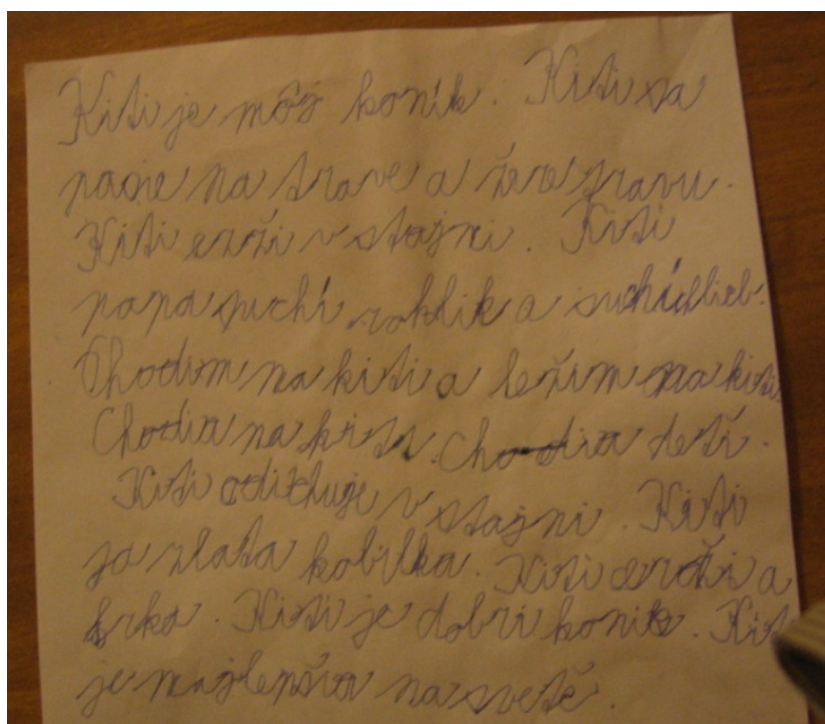 Kiti je môj koník. Kiti sa
pasie na trave a žere travu.
Kiti erži v stajni. Kiti
papa suchí rohlik a suchíchlieb.
Chodim na kiti a ležim na kiti.
Chodia na kiti. Chodia detí.
Kiti oditchuje v stajni. Kiti
je zlata kobilka. Kiti erži a
frka. Kiti je dobri konik. Kiti
je najlepšia na svetě.